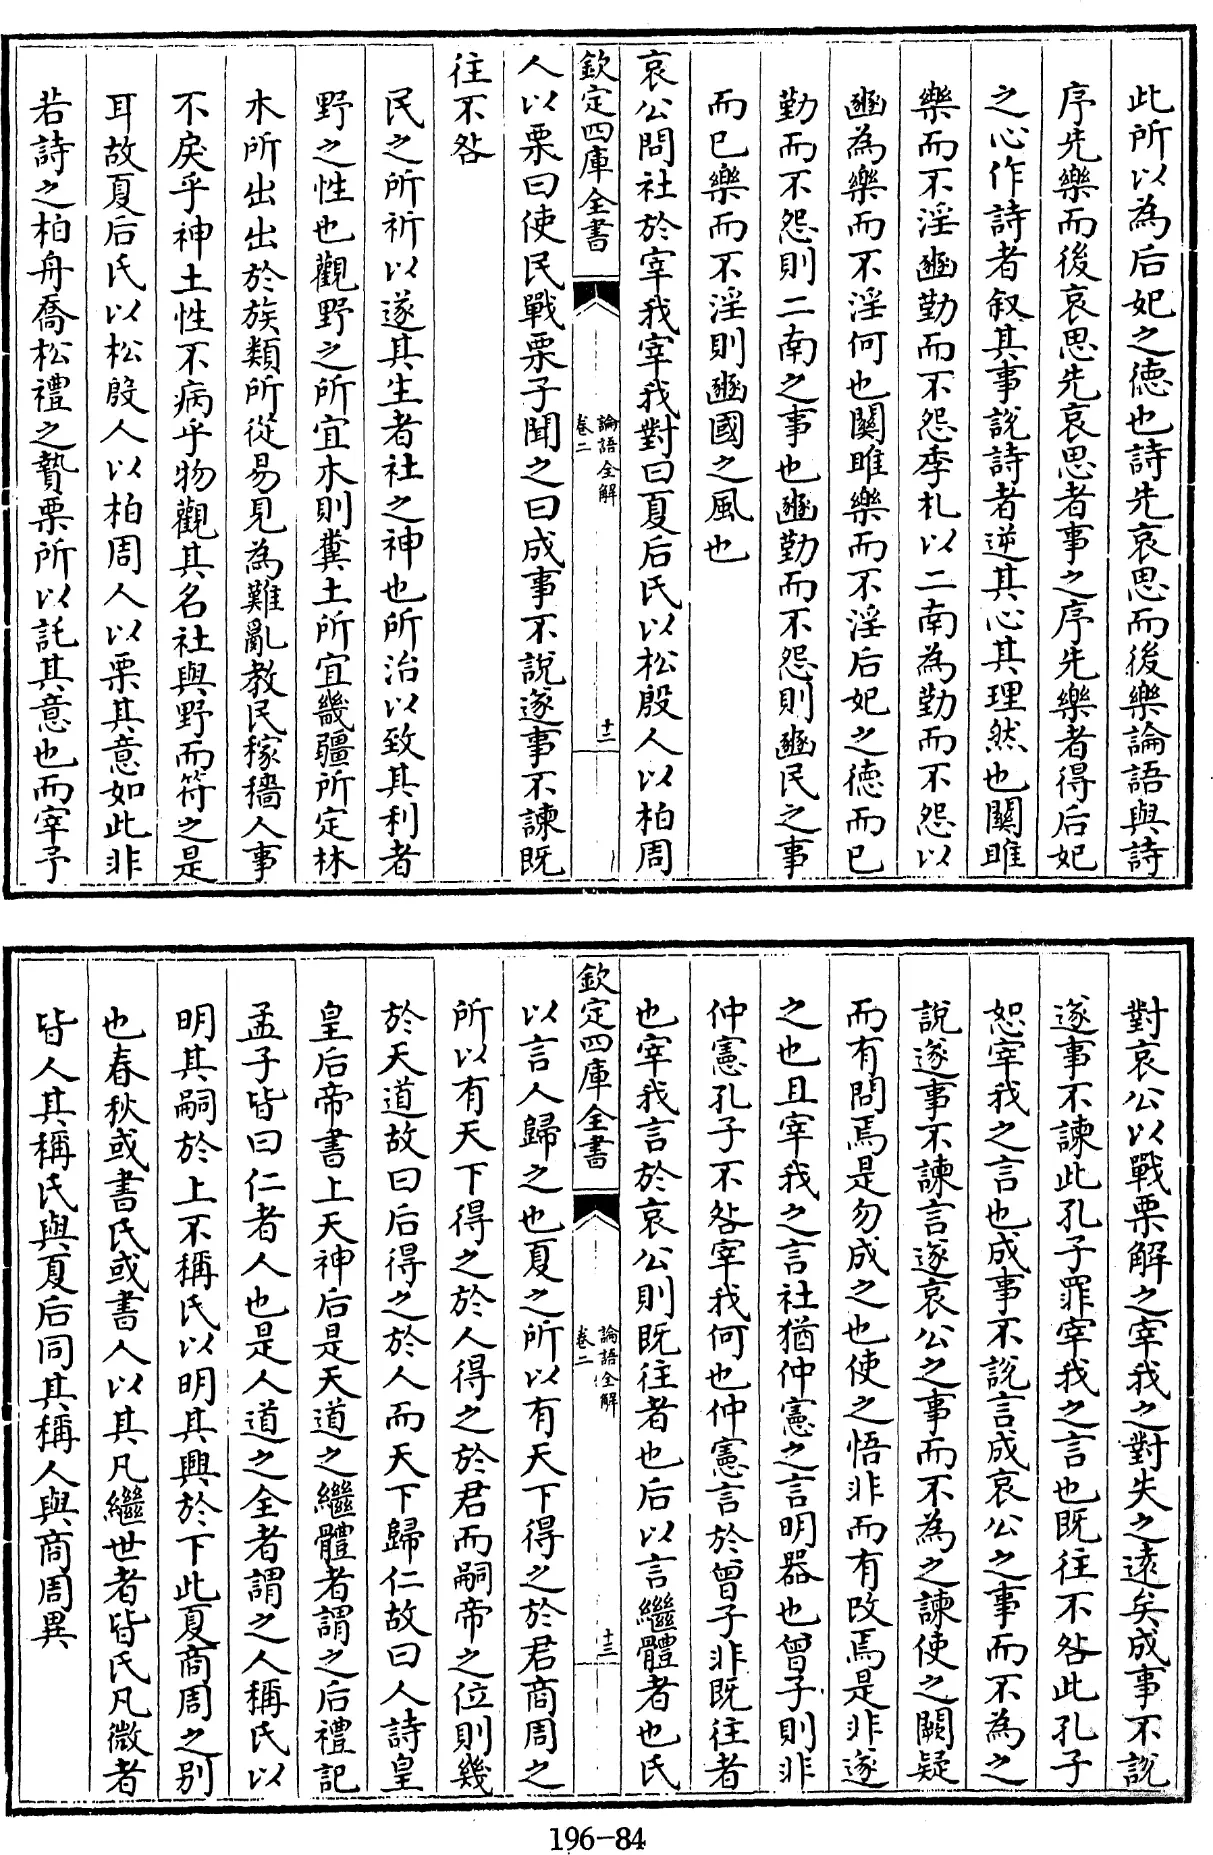 此所以為后妃之德也詩先哀思而後樂論語與詩
序先樂而後哀思先哀思者事之序先樂者得后妃
之心作詩者叙其事說詩者逆其心其理然也關雎
樂而不淫豳勤而不怨季札以二南為勤而不怨以
豳為樂而不淫何也關雎樂而不淫后妃之德而已
勤而不怨則二南之事也豳勤而不怨則豳民之事
而已樂而不淫則豳國之風也
哀公問社於宰我宰我對曰夏后氏以松殷人以柏周
欽定四庫全書
論語全解
卷二
十二
人以栗曰使民戰栗子聞之曰成事不說遂事不諫既
往不咎
民之所祈以遂其生者社之神也所治以致其利者
野之性也觀野之所宜木則糞土所宜畿疆所定林
木所出出於族類所從易見為難亂教民稼穡人事
不戾乎神土性不病乎物觀其名社與野而符之是
耳故夏后氏以松殷人以柏周人以栗其意如此非
若詩之柏舟喬松禮之贄栗所以託其意也而宰予
對哀公以戰栗解之宰我之對失之遠矣成事不說
遂事不諫此孔子罪宰我之言也既往不咎此孔子
恕宰我之言也成事不說言成哀公之事而不為之
說遂事不諫言遂哀公之事而不為之諫使之闕疑
而有問焉是勿成之也使之悟非而有改焉是非遂
之也且宰我之言社猶仲憲之言明器也曾子則非
仲憲孔子不咎宰我何也仲憲言於曾子非既往者
也宰我言於哀公則既往者也后以言繼體者也氏
欽定四庫全書
論語全解
卷二
十三
以言人歸之也夏之所以有天下得之於君商周之
所以有天下得之於人得之於君而嗣帝之位則幾
於天道故曰后得之於人而天下歸仁故曰人詩皇
皇后帝書上天神后是天道之繼體者謂之后禮記
孟子皆曰仁者人也是人道之全者謂之人稱氏以
明其嗣於上不稱氏以明其興於下此夏商周之別
也春秋或書氏或書人以其凡繼世者皆氏凡微者
皆人其稱氏與夏后同其稱人與商周異
196-84